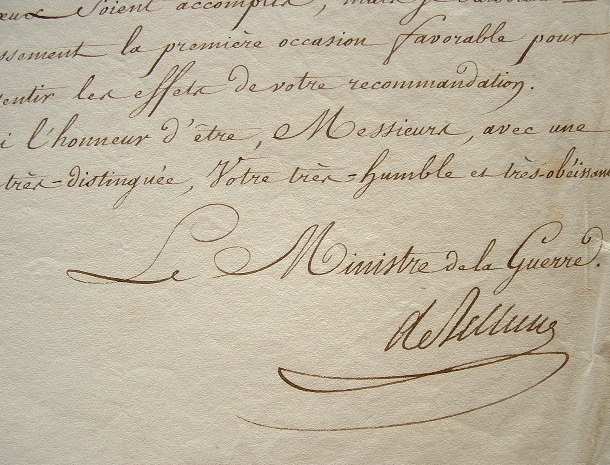 œux soient accomplis, mais je
ssement la première occasion favorable pour
sentir les effets de votre recommandation.
i l'honneur d'être, Messieurs, avec une
très=distinguée, Votre très=humble et très-obéissan
Le Ministre de la Guerre.